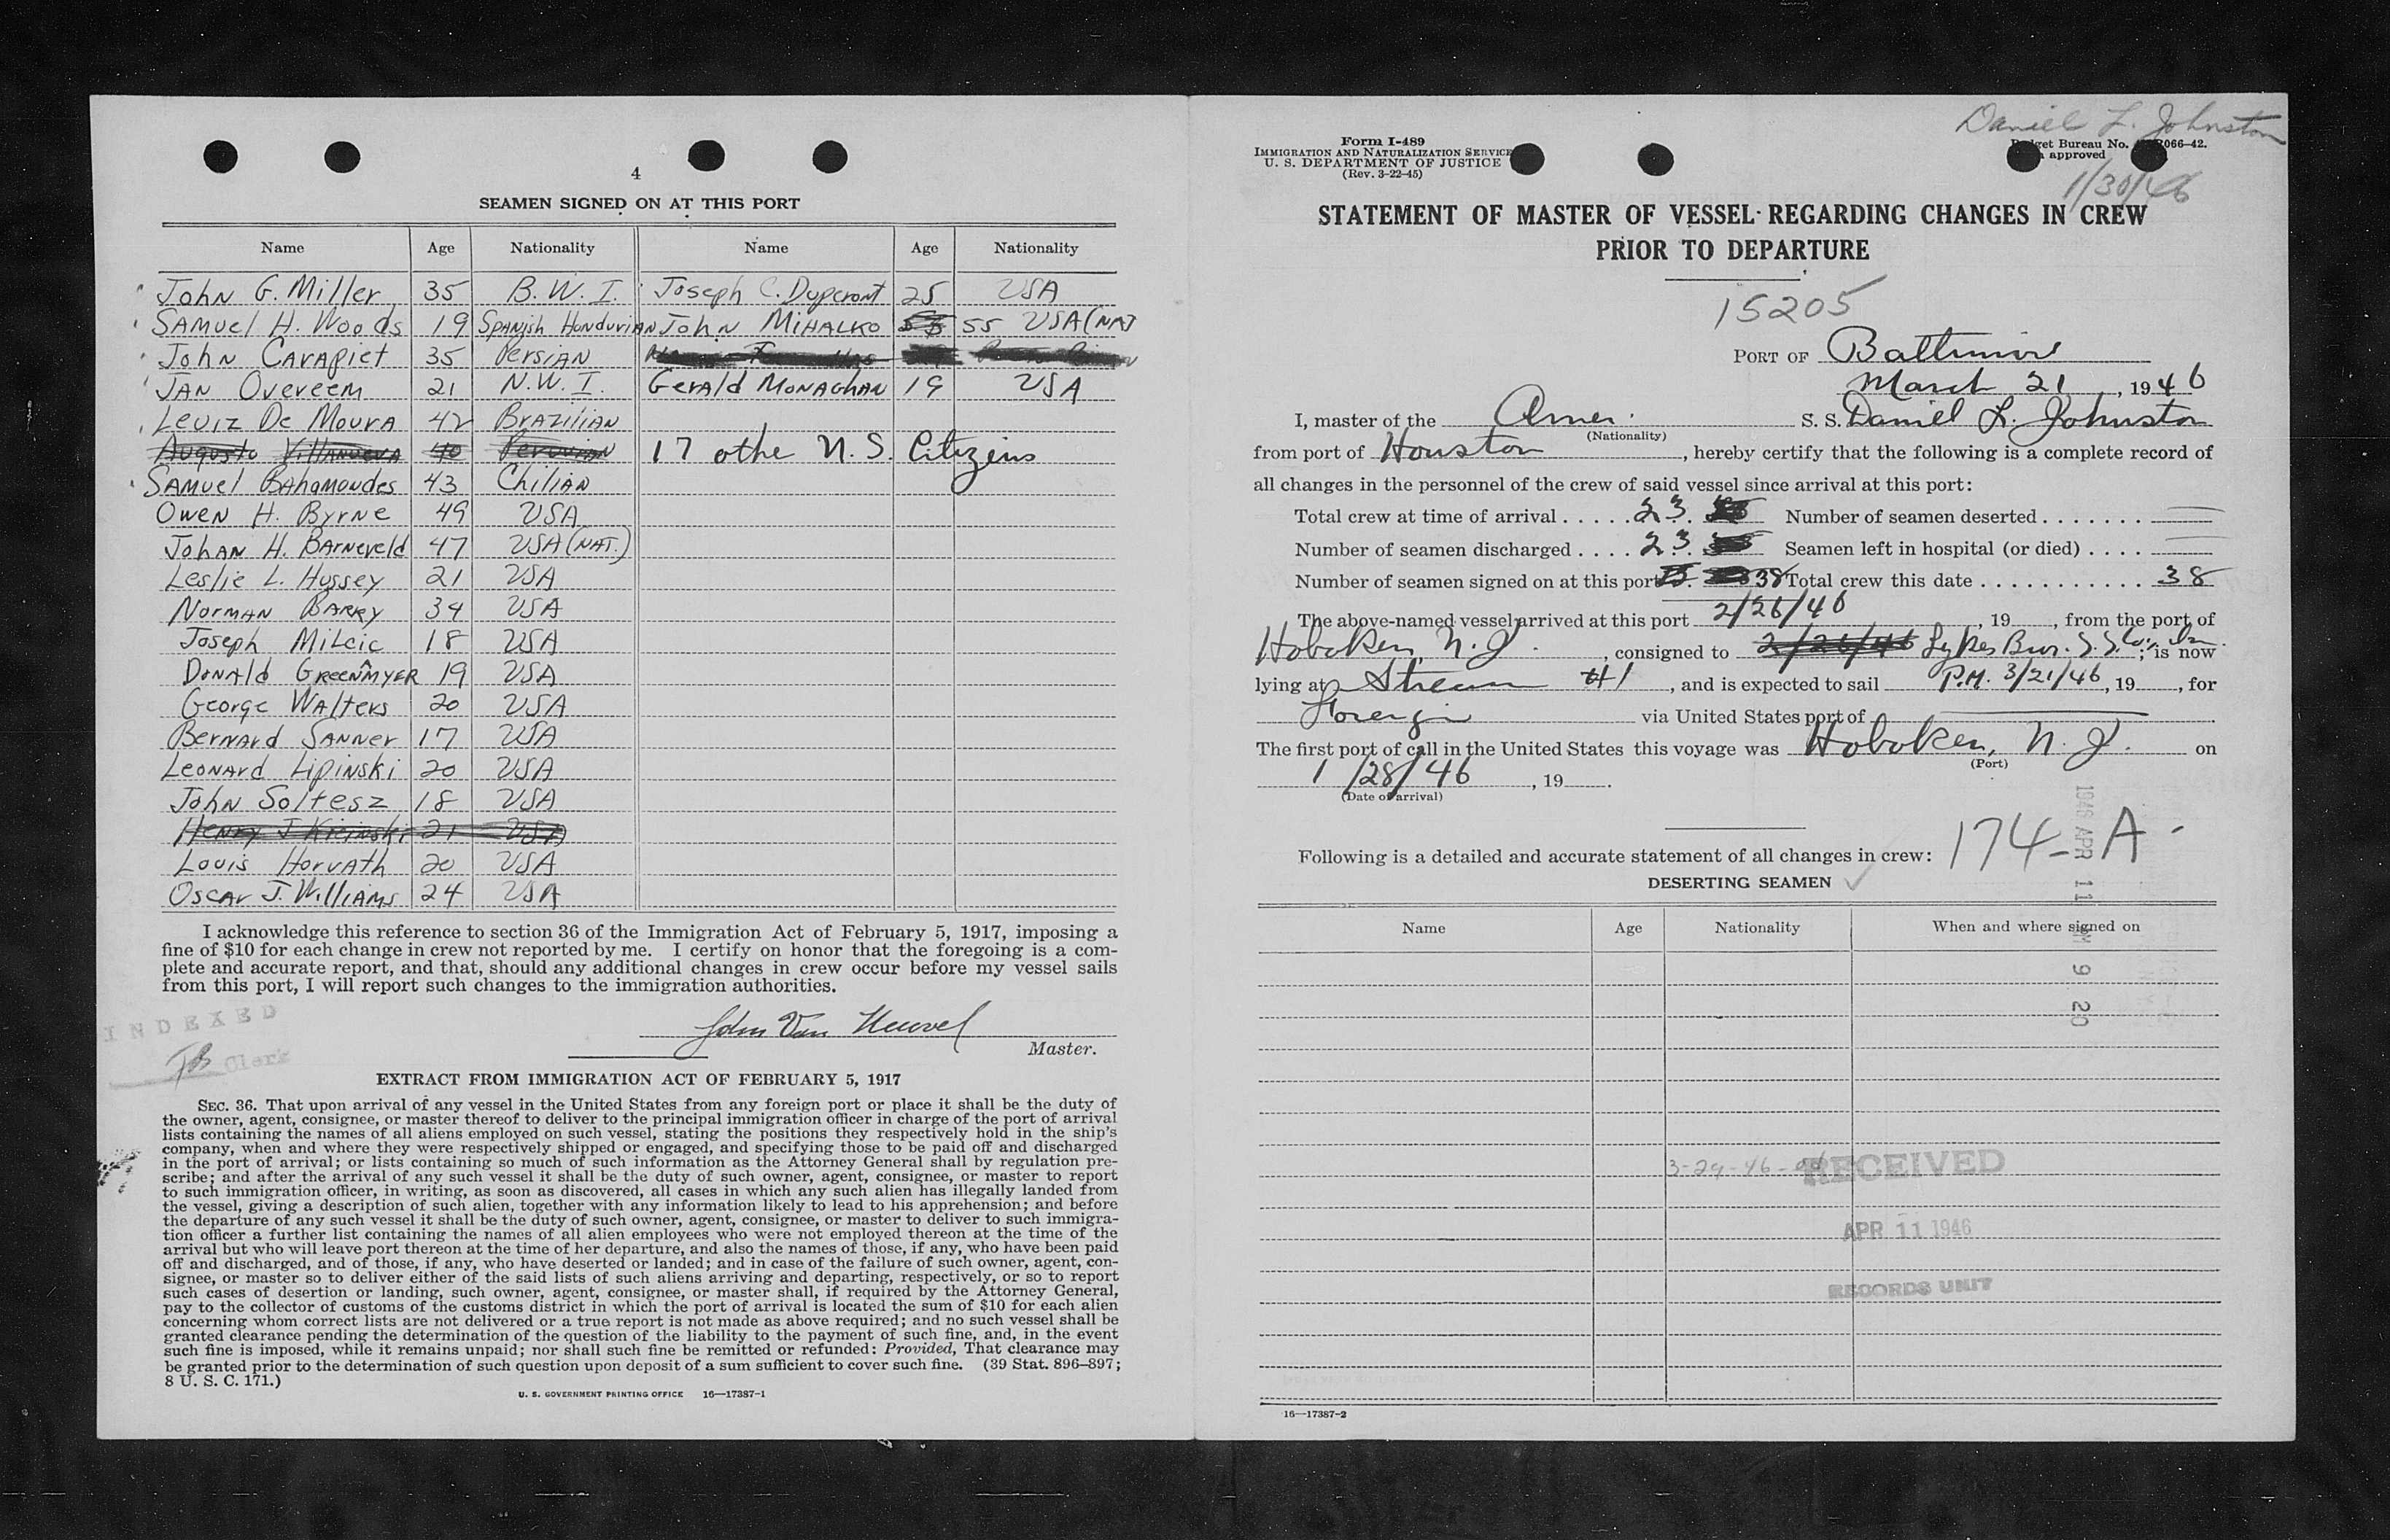 4
SEAMEN SIGNED ON AT THIS PORT
Name Age Nationality Name Age Nationality
John G. Miller 35 B. W. I. Joseph C. Dupcront 25 USA
Samuel H. Woods 19 Spanish Hondurian John Mihalko 55 USA (NAT
John Carapiet 35 Persian
Jan Overeem 21 N.W.I. Gerald Monaghan 19 USA
Leuiz De Moura 42 Brazilian
Augusto Villanueva 40 Peruvian 17 othe U.S. Citizens
Samuel Bahamondes 43 Chilian
Owen H. Byrne 49 USA
Johan H. Barneveld 47 USA (NAT.)
Leslie L. Hussey 21 USA
Norman Barry 34 USA
Joseph Milcic 18 USA
Donald Greenmyer 19 USA
George Walters 20 USA
Bernard Sanner 17 USA
Leonard Lipinski 20 USA
John Soltesz 18 USA
Henry J Kicinski 21 USA
Louis Horvath 20 USA
Oscar J. Williams 24 USA
I acknowledge this reference to section 36 of the Immigration Act of February 5, 1917, imposing a
fine of $10 for each change in crew not reported by me. I certify on honor that the foregoing is a com-
plete and accurate report, and that, should any additional changes in crew occur before my vessel sails
from this port, I will report such changes to the immigration authorities.
INDEXED
John Van Heuvel
Master.
Clerk
EXTRACT FROM IMMIGRATION ACT OF FEBRUARY 5, 1917
SEC. 36. That upon arrival of any vessel in the United States from any foreign port or place it shall be the duty of
the owner, agent, consignee, or master thereof to deliver to the principal immigration officer in charge of the port of arrival
lists containing the names of all aliens employed on such vessel, stating the positions they respectively hold in the ship's
company, when and where they were respectively shipped or engaged, and specifying those to be paid off and discharged
in the port of arrival; or lists containing so much of such information as the Attorney General shall by regulation pre-
scribe; and after the arrival of any such vessel it shall be the duty of such owner, agent, consignee, or master to report
to such immigration officer, in writing, as soon as discovered, all cases in which any such alien has illegally landed from
the vessel, giving a description of such alien, together with any information likely to lead to his apprehension; and before
the departure of any such vessel it shall be the duty of such owner, agent, consignee, or master to deliver to such immigra-
tion officer a further list containing the names of all alien employees who were not employed thereon at the time of the
arrival but who will leave port thereon at the time of her departure, and also the names of those, if any, who have been paid
off and discharged, and of those, if any, who have deserted or landed; and in case of the failure of such owner, agent, con-
signee, or master so to deliver either of the said lists of such aliens arriving and departing, respectively, or so to report
such cases of desertion or landing, such owner, agent, consignee, or master shall, if required by the Attorney General,
pay to the collector of customs of the customs district in which the port of arrival is located the sum of $10 for each alien
concerning whom correct lists are not delivered or a true report is not made as above required; and no such vessel shall be
granted clearance pending the determination of the question of the liability to the payment of such fine, and, in the event
such fine is imposed, while it remains unpaid; nor shall such fine be remitted or refunded: Provided, That clearance may
be granted prior to the determination of such question upon deposit of a sum sufficient to cover such fine. (39 Stat. 896-897;
8 U. S. C. 171.)
U. S. GOVERNMENT PRINTING OFFICE 16—17387-1
Daniel L. Johnston
Form I-489
IMMIGRATION AND NATURALIZATION SERVICE
U. S. DEPARTMENT OF JUSTICE
(Rev. 3-22-45)
Bureau No. 066-42.
approved
1/30/46
STATEMENT OF MASTER OF VESSEL REGARDING CHANGES IN CREW
PRIOR TO DEPARTURE
15205
PORT OF Baltimore
March 21, 1946
I, master of the Amer. S. S. Daniel L. Johnston
(Nationality)
from port of Houston, hereby certify that the following is a complete record of
all changes in the personnel of the crew of said vessel since arrival at this port:
Total crew at time of arrival . . . . . 23 Number of seamen deserted . . . . . . .
Number of seamen discharged . . . . 23 Seamen left in hospital (or died) . . . .
Number of seamen signed on at this port 38 Total crew this date . . . . . . . . . . . 38
The above-named vessel arrived at this port 2/26/46, 19 , from the port of
Hoboken, N.J., consigned to 2/26/46 Lykes Bros. S.S. Co. Inc.; is now
lying at Stream #1, and is expected to sail P.M. 3/21/46, 19 , for
Foreign via United States port of
The first port of call in the United States this voyage was Hoboken, N.J. on
(Port)
1/28/46, 19 .
(Date of arrival)
174-A
Following is a detailed and accurate statement of all changes in crew:
DESERTING SEAMEN
Name Age Nationality When and where signed on
1946 APR 11 AM 9 20
3-29-46
RECEIVED
APR 11 1946
RECORDS UNIT
16—17387-2